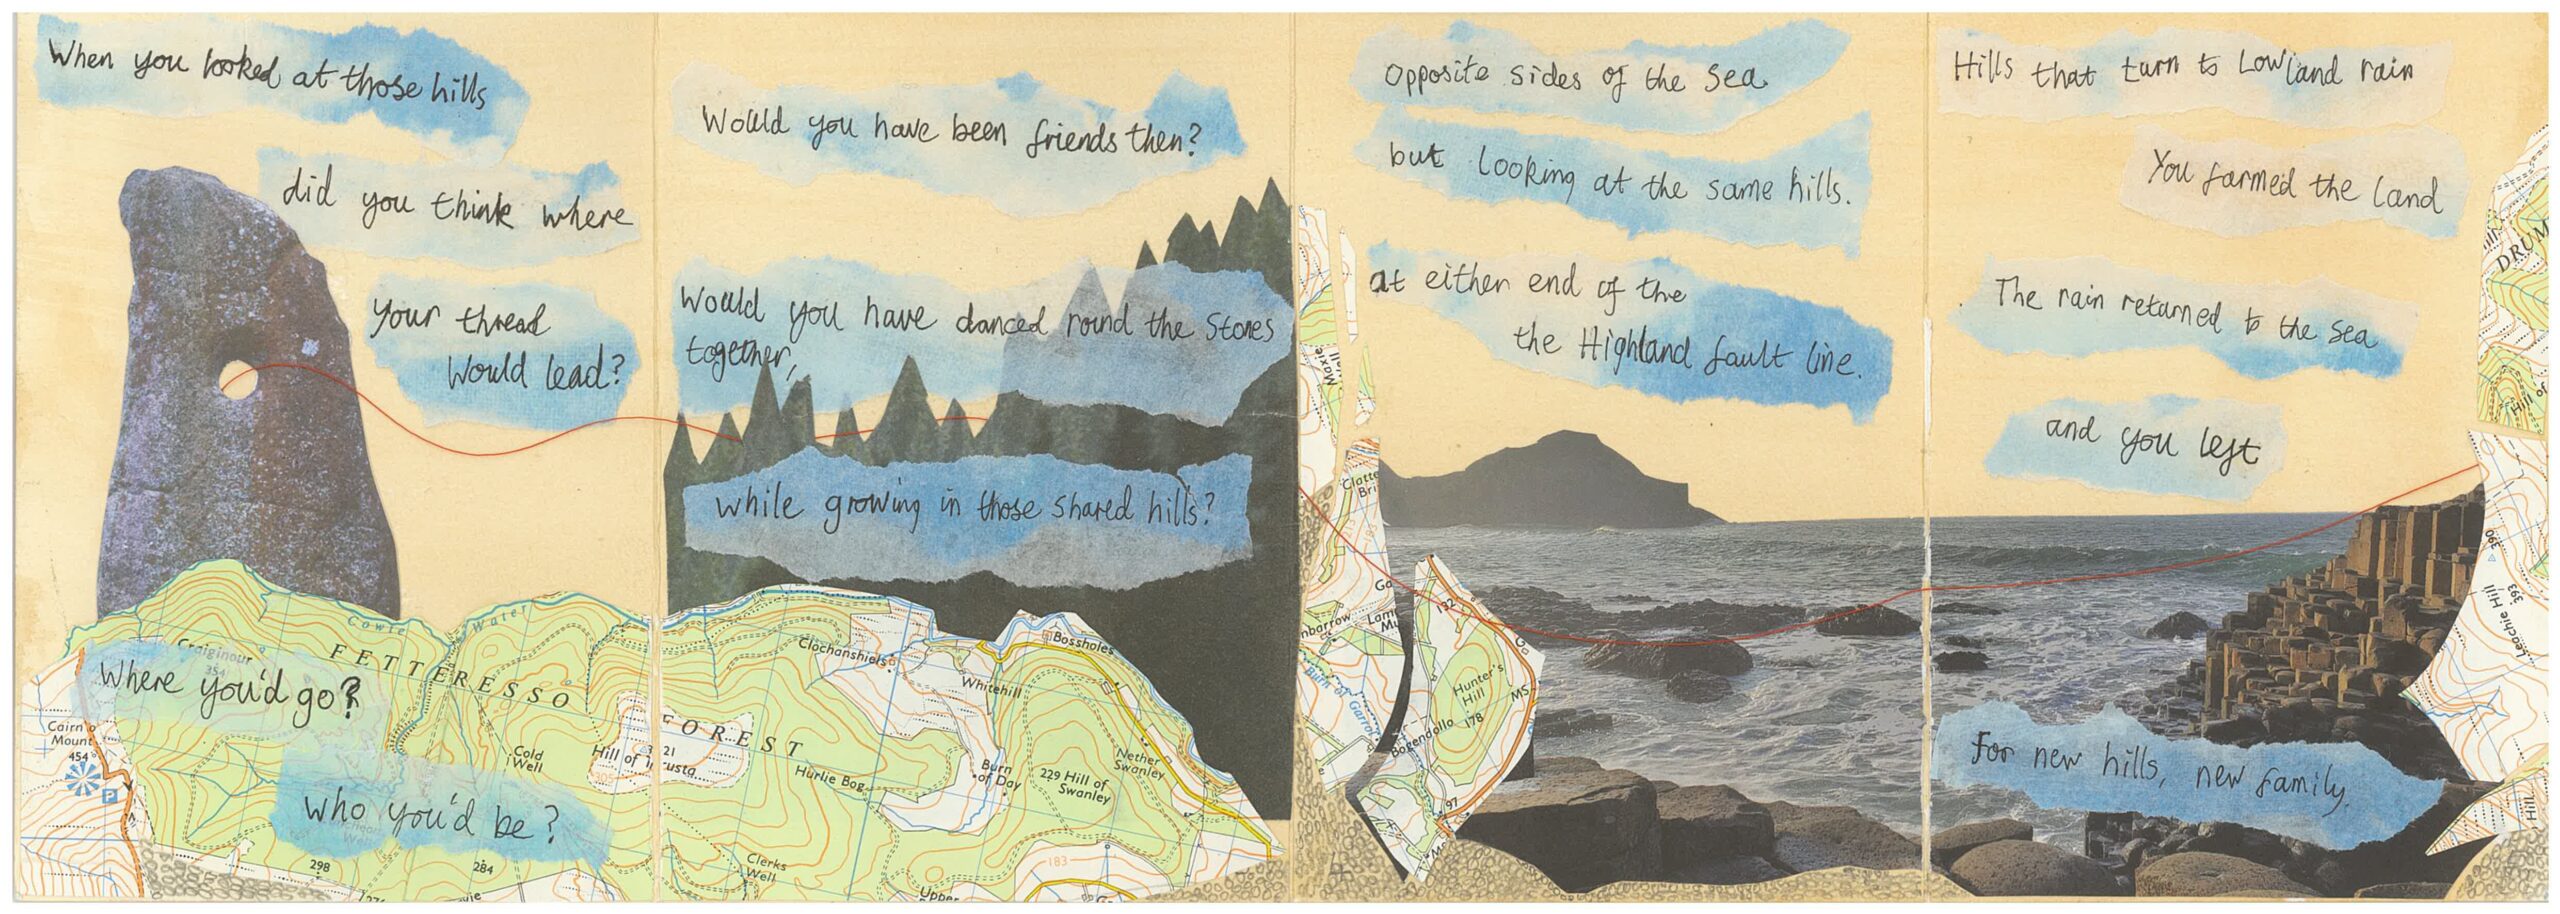 When you looked at those hills
did you think where
your thread
would lead?
Where you'd go?
Who you'd be?
Would you have been friends then?
Would you have danced round the stones
together,
while growing in those shared hills?
Opposite sides of the sea
but looking at the same hills.
at either end of the
the Highland fault line.
Hills that turn to Lowland rain
You farmed the land
The rain returned to the sea
and you left
For new hills, new family.
Cowie Water
Craiginour
354
FETTERESSO
FOREST
Cairn o'
Mount
454
P
Cold
Well
Hill of
305
298
284
Clochanshiels
Whitehill
Bossholes
Hurlie Bog
Burn
of Day
229 Hill of
Swanley
Nether
Swanley
Clerks
Well
183
Upper
Burn of Garrol
132
Hunter's
Hill
178
MS
Bogendollo
97
DRUM
Hill of
390
393
Leachie Hill
Hill